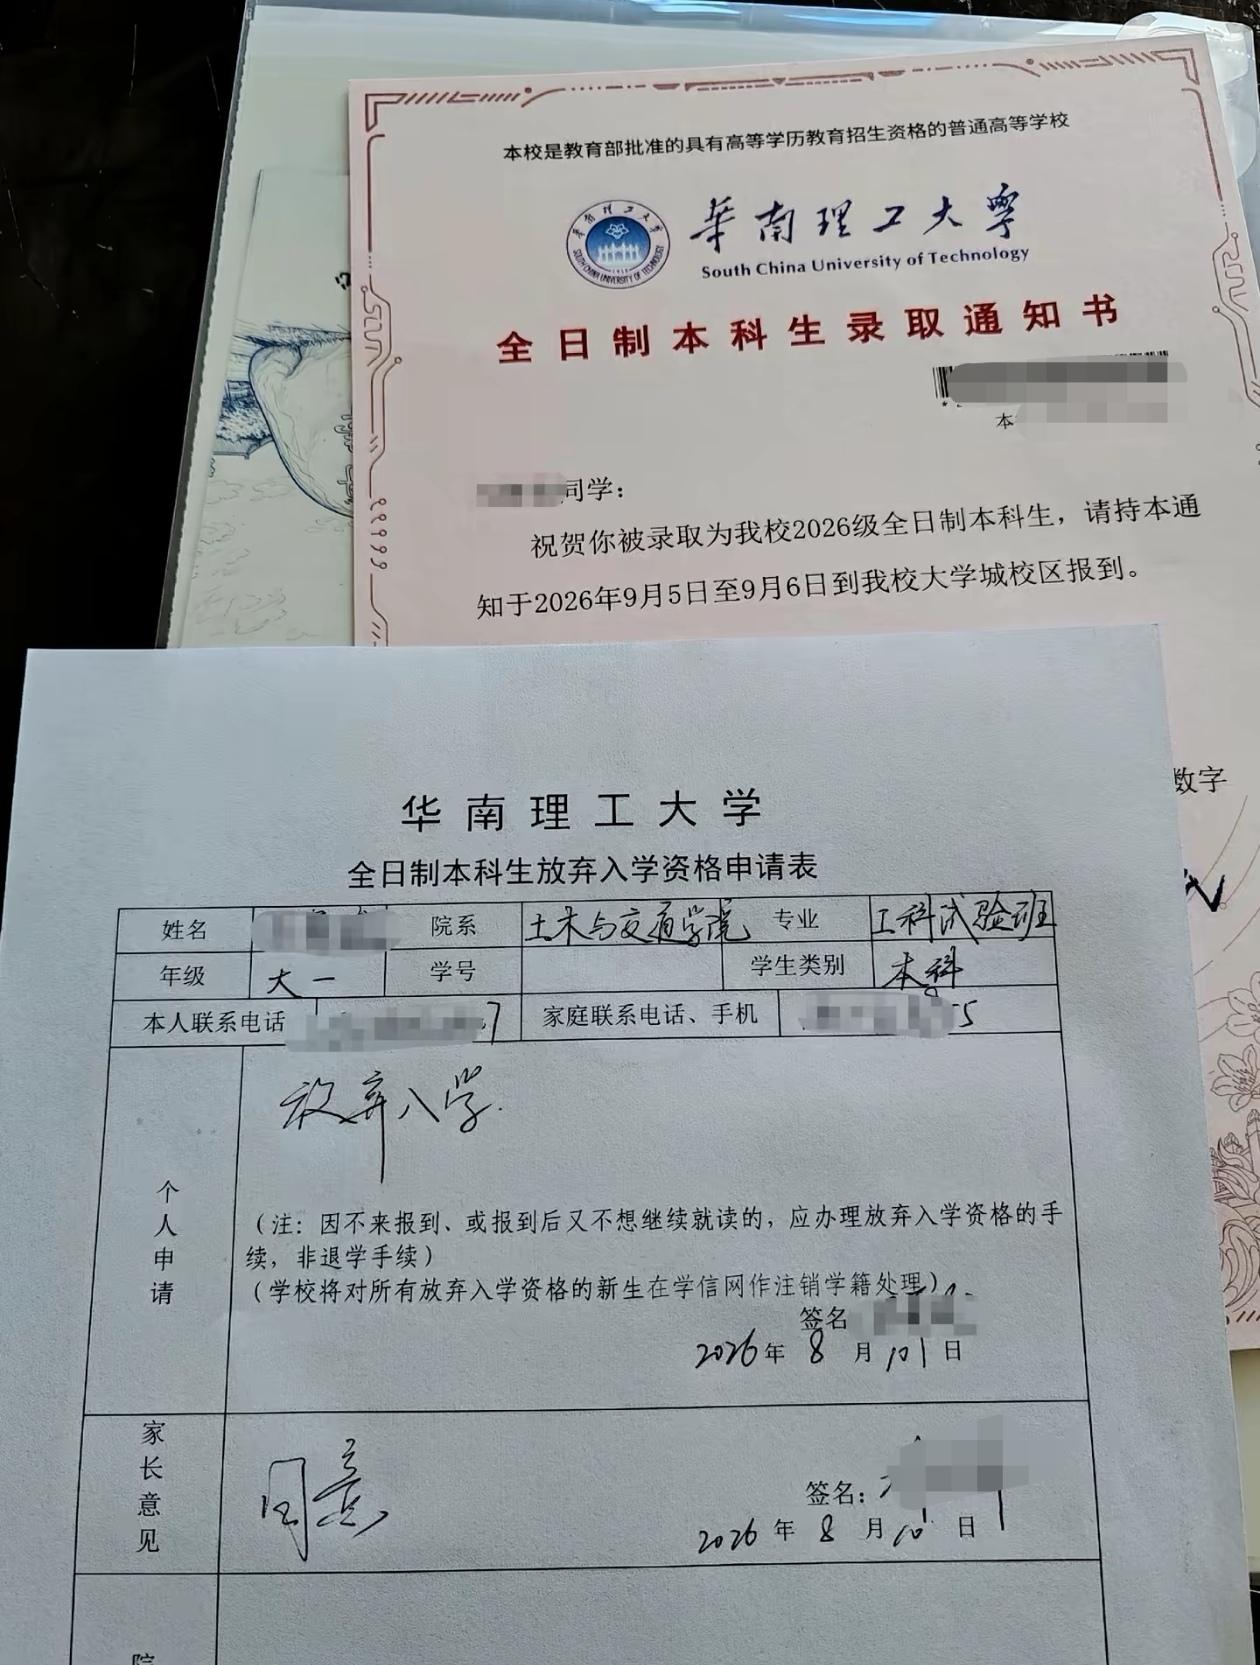 本校是教育部批准的具有高等学历教育招生资格的普通高等学校
华南理工大学
South China University of Technology
全日制本科生录取通知书
本
同学：
祝贺你被录取为我校2026级全日制本科生，请持本通
知于2026年9月5日至9月6日到我校大学城校区报到。
数字
华南理工大学
全日制本科生放弃入学资格申请表
姓名 院系 土木与交通学院 专业 工科试验班
年级 大一 学号 学生类别 本科
本人联系电话 7 家庭联系电话、手机 55
个人申请
放弃入学.
（注：因不来报到、或报到后又不想继续就读的，应办理放弃入学资格的手
续，非退学手续）
（学校将对所有放弃入学资格的新生在学信网作注销学籍处理）
签名
2026年 8 月 10 日
家长意见
同意
签名：
2026年 8 月 10 日
院